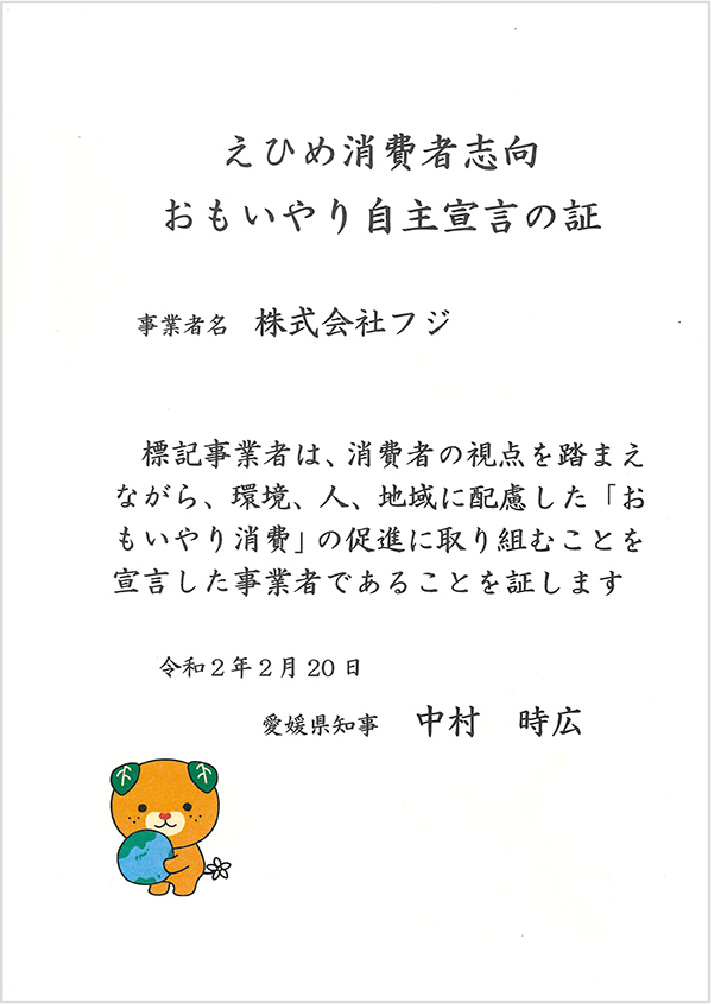 えひめ消費者志向
おもいやり自主宣言の証
事業者名 株式会社フジ
標記事業者は、消費者の視点を踏まえ
ながら、環境、人、地域に配慮した「お
もいやり消費」の促進に取り組むことを
宣言した事業者であることを証します
令和2年2月20日
愛媛県知事 中村 時広